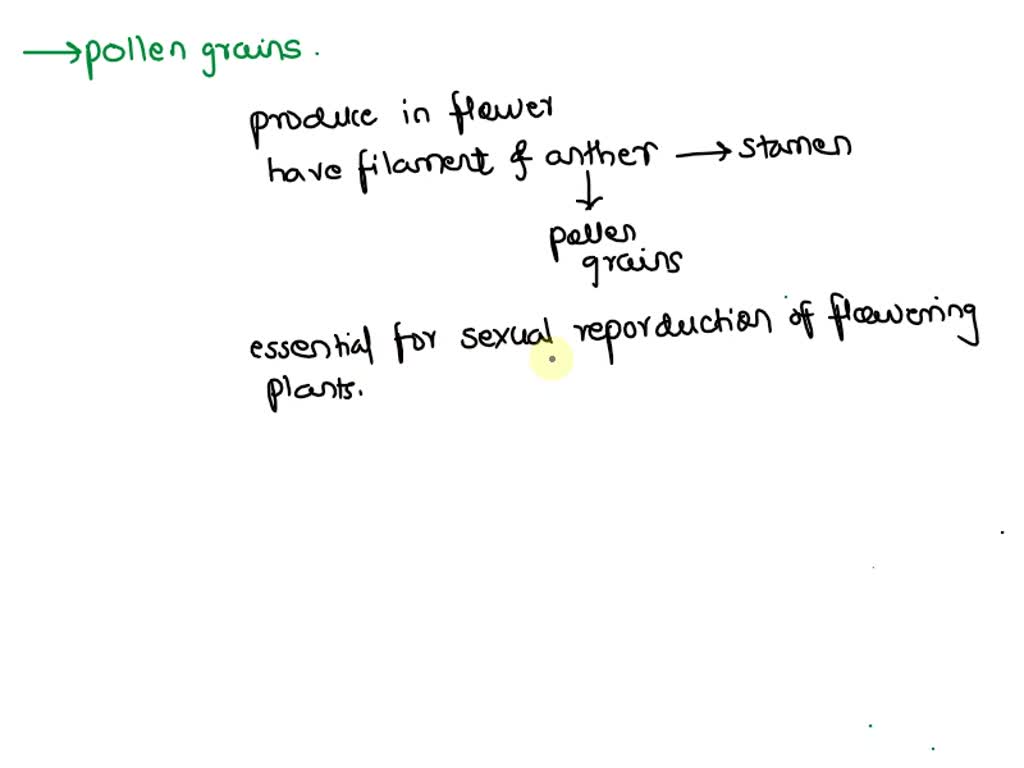 → pollen grains.
produce in flower
have filament & anther → stamen
↓
pollen
grains
essential for sexual reporduction of flowering
plants.